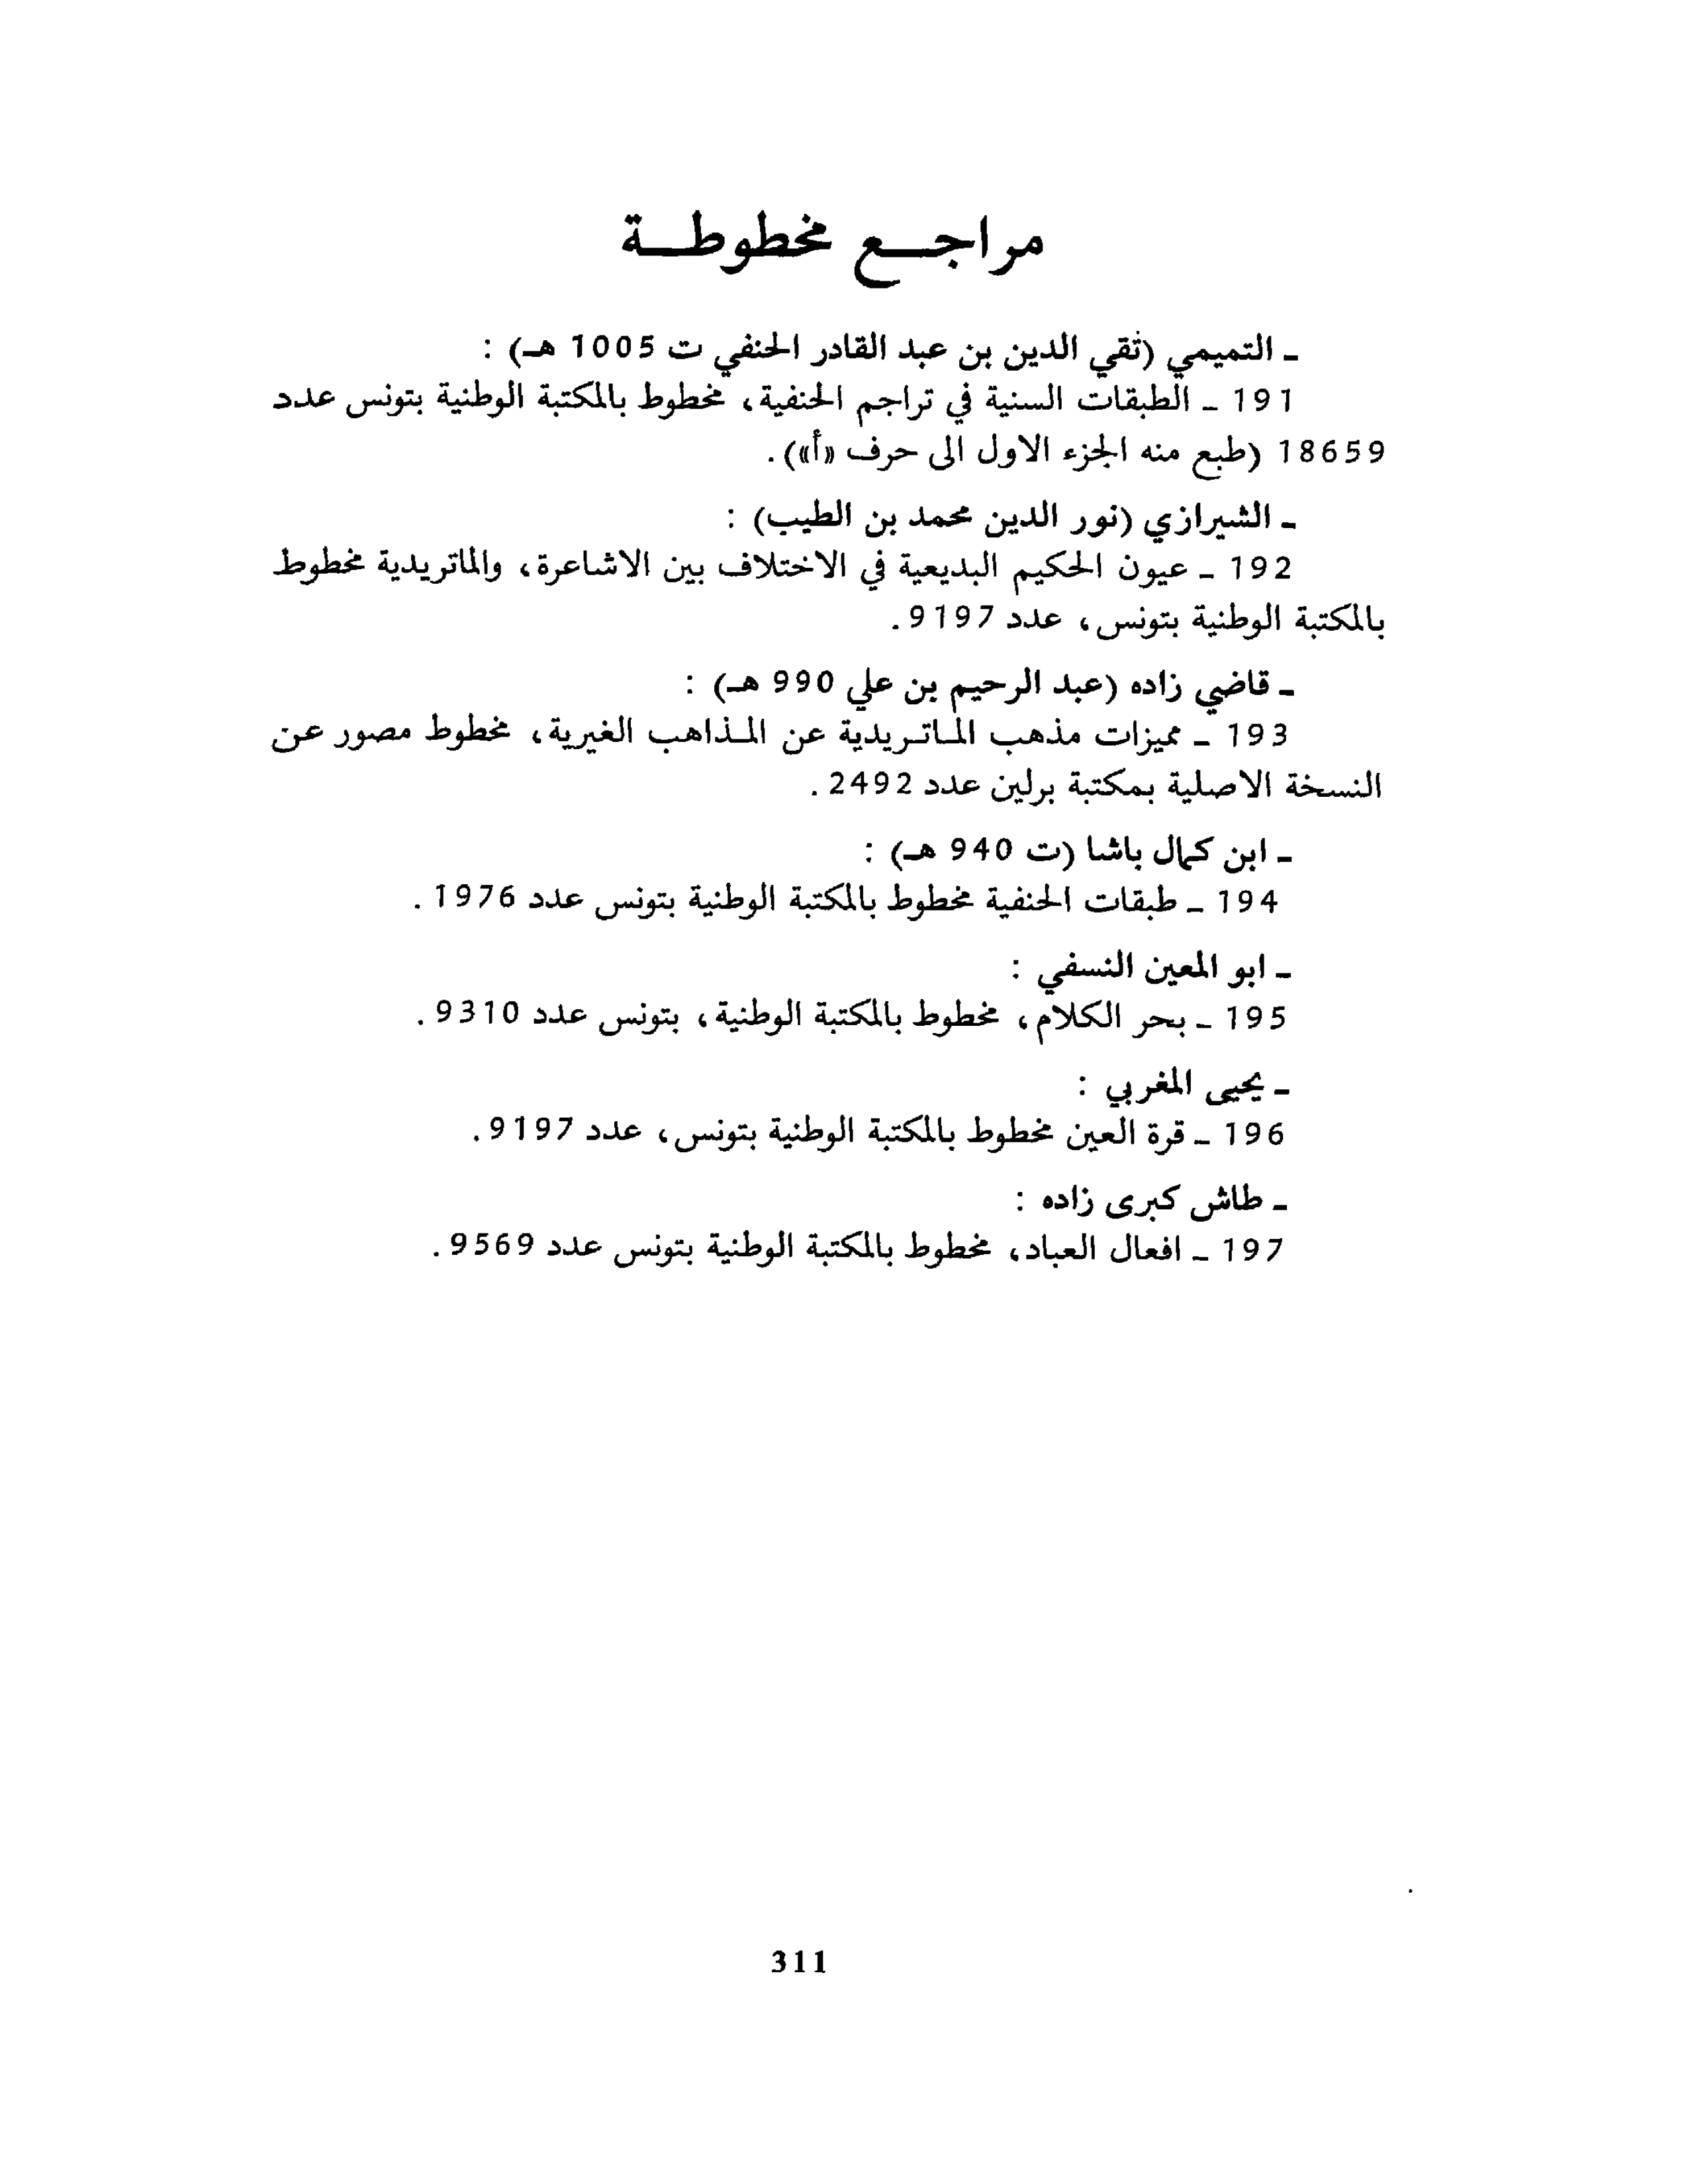 مراجع مخطوطة
ـ التميمي (تقي الدين بن عبد القادر الحنفي ت 1005 هـ) :
191 ـ الطبقات السنية في تراجم الحنفية، مخطوط بالمكتبة الوطنية بتونس عدد
18659 (طبع منه الجزء الاول الى حرف «أ»).
ـ الشيرازي (نور الدين محمد بن الطيب) :
192 ـ عيون الحكيم البديعية في الاختلاف بين الاشاعرة، والماتريدية مخطوط
بالمكتبة الوطنية بتونس، عدد 9197.
ـ قاضي زاده (عبد الرحيم بن علي 990 هـ) :
193 ـ مميزات مذهب الماتريدية عن المذاهب الغيرية، مخطوط مصور عن
النسخة الاصلية بمكتبة برلين عدد 2492.
ـ ابن كمال باشا (ت 940 هـ) :
194 ـ طبقات الحنفية مخطوط بالمكتبة الوطنية بتونس عدد 1976.
ـ ابو المعين النسفي :
195 ـ بحر الكلام، مخطوط بالمكتبة الوطنية، بتونس عدد 9310.
ـ يحيى المغربي :
196 ـ قرة العين مخطوط بالمكتبة الوطنية بتونس، عدد 9197.
ـ طاش كبرى زاده :
197 ـ افعال العباد، مخطوط بالمكتبة الوطنية بتونس عدد 9569.
311